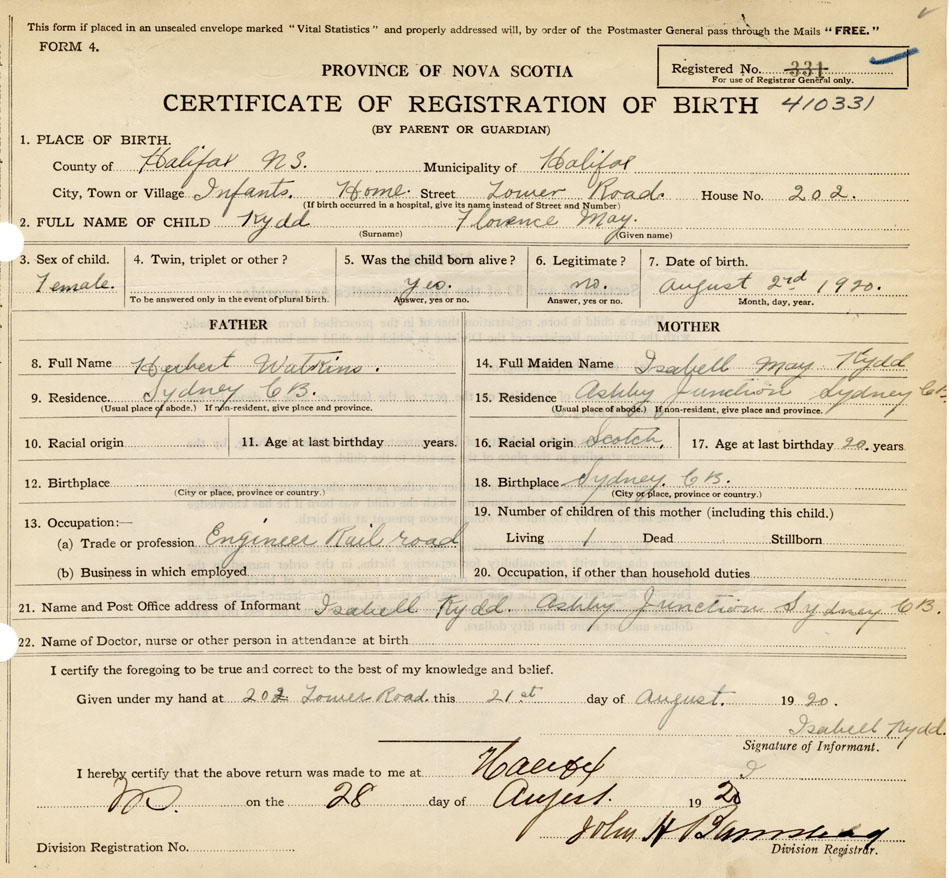 This form if placed in an unsealed envelope marked "Vital Statistics" and properly addressed will, by order of the Postmaster General pass through the Mails "FREE."
FORM 4.
PROVINCE OF NOVA SCOTIA
Registered No. 331
For use of Registrar General only.
CERTIFICATE OF REGISTRATION OF BIRTH 410331
(BY PARENT OR GUARDIAN)
1. PLACE OF BIRTH.
County of Halifax N.S. Municipality of Halifax
City, Town or Village Infants. Home. Street Tower Road. House No. 202.
(If birth occurred in a hospital, give its name instead of Street and Number)
2. FULL NAME OF CHILD Kydd Florence May.
(Surname) (Given name)
3. Sex of child. 4. Twin, triplet or other ? 5. Was the child born alive ? 6. Legitimate ? 7. Date of birth.
Female. yes. no. August 2nd 1920.
To be answered only in the event of plural birth. Answer, yes or no. Answer, yes or no. Month, day, year.
FATHER MOTHER
8. Full Name Herbert Watkins. 14. Full Maiden Name Isabell May Kydd
9. Residence. Sydney C B. 15. Residence Ashby Junction Sydney C B.
(Usual place of abode.) If non-resident, give place and province. (Usual place of abode.) If non-resident, give place and province.
10. Racial origin 11. Age at last birthday years. 16. Racial origin Scotch. 17. Age at last birthday 20. years
12. Birthplace 18. Birthplace Sydney. C B.
(City or place, province or country.) (City or place, province or country.)
13. Occupation:— 19. Number of children of this mother (including this child.)
(a) Trade or profession Engineer Rail road Living 1 Dead Stillborn
(b) Business in which employed 20. Occupation, if other than household duties
21. Name and Post Office address of Informant Isabell Kydd. Ashby Junction Sydney C B.
22. Name of Doctor, nurse or other person in attendance at birth
I certify the foregoing to be true and correct to the best of my knowledge and belief.
Given under my hand at 202 Tower Road. this 21st day of August. 1920.
Isabell Kydd.
Signature of Informant.
I hereby certify that the above return was made to me at Halifax
on the 28 day of August. 1920
John H
Division Registration No. Division Registrar.